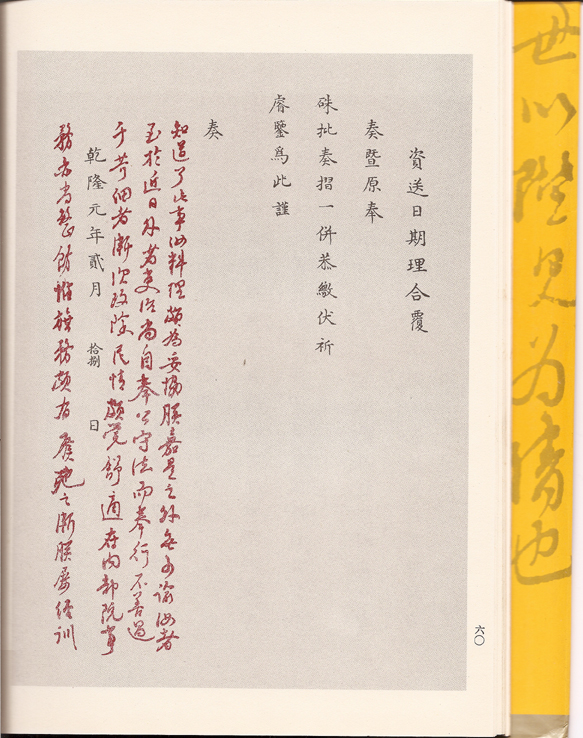 毋以陛見为請也
資送日期理合覆
奏暨原奉
硃批奏摺一併恭繳伏祈
睿鑒爲此謹
奏
知道了此事汝料理頗為妥協朕嘉是之外無可諭汝者
至於近日外省吏治尚自奉公守法而奉行不善過
于苛細者漸次改除民情頗覺舒適在內部院事
乾隆元年貳月 拾捌 日
務亦尚整飭惟旗務頗有廢弛之漸朕屢經訓
六〇